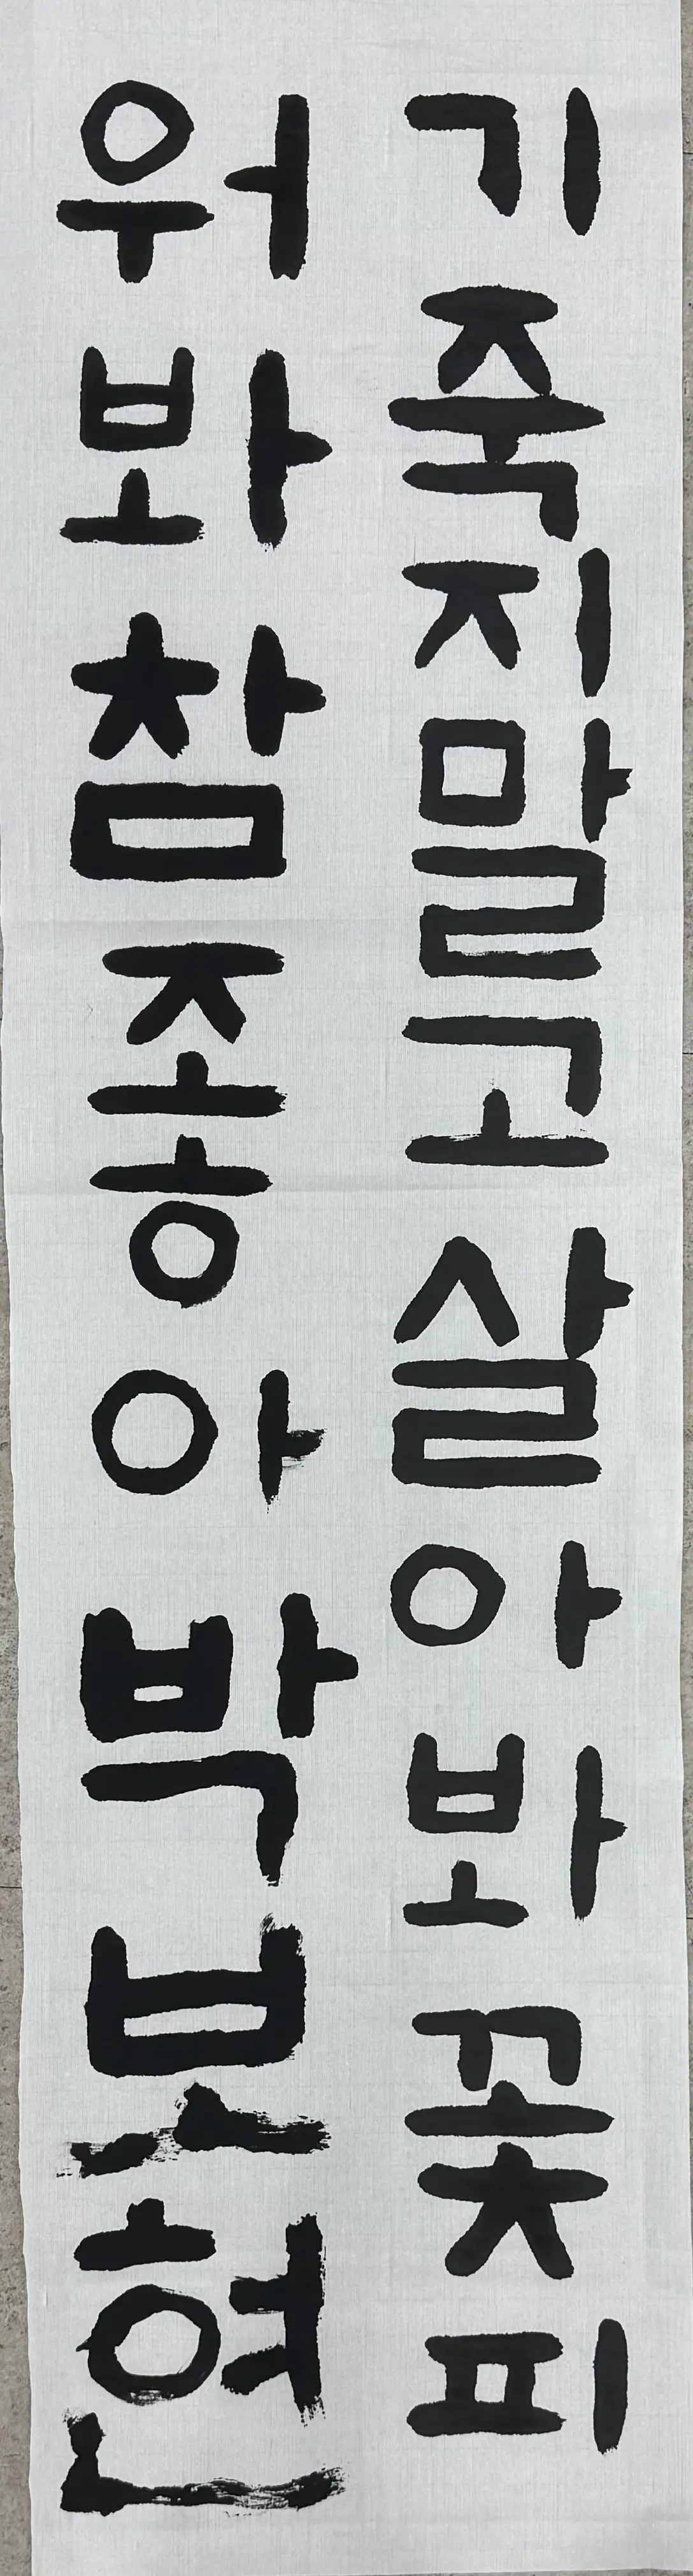 기죽지말고살아봐꽃피
워봐참좋아박보현